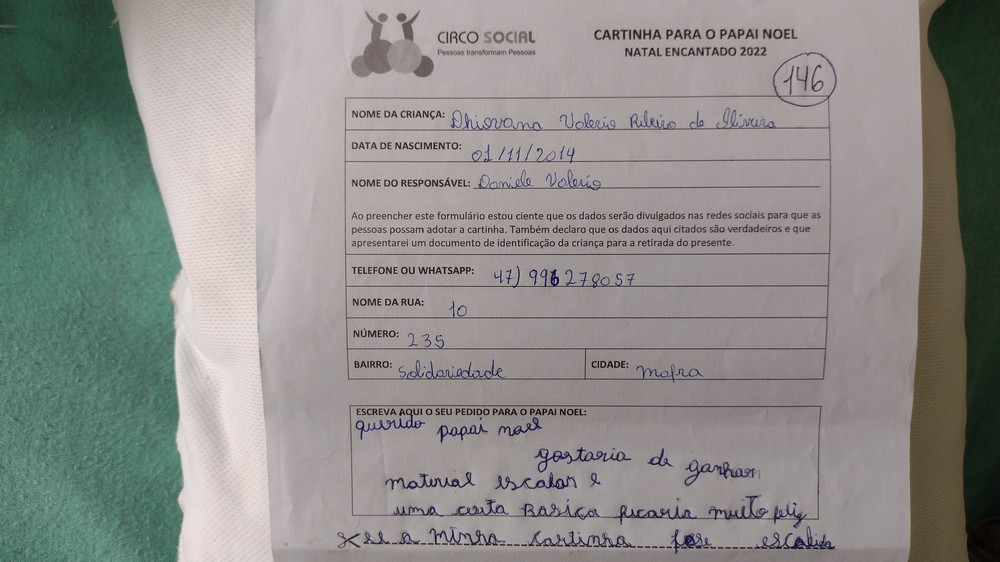 CIRCO SOCIAL
Pessoas transformam Pessoas
CARTINHA PARA O PAPAI NOEL
NATAL ENCANTADO 2022
146
NOME DA CRIANÇA: Dhiovana Valerio Ribeiro de Oliveira
DATA DE NASCIMENTO: 01/11/2014
NOME DO RESPONSÁVEL: Daniele Valerio
Ao preencher este formulário estou ciente que os dados serão divulgados nas redes sociais para que as
pessoas possam adotar a cartinha. Também declaro que os dados aqui citados são verdadeiros e que
apresentarei um documento de identificação da criança para a retirada do presente.
TELEFONE OU WHATSAPP: 47) 996278057
NOME DA RUA: 10
NÚMERO: 235
BAIRRO: Solidariedade CIDADE: mafra
ESCREVA AQUI O SEU PEDIDO PARA O PAPAI NOEL:
querido papai noel
gostaria de ganhar
material escolar e
uma cesta Basica ficaria muito feliz
se a minha cartinha fose escolida